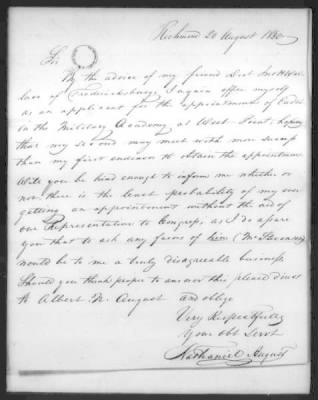 Richmond 20 August 1830
Sir
By the advice of my friend Doct Jno H Wal-
lace of Fredericksburg, I again offer myself
as an applicant for the appointment of Cadet
in the Military Academy at West Point; hoping
that my second may meet with more success
than my first endeavor to obtain the appointment
Will you be kind enough to inform me whether or
not there is the least probability of my ever
getting an appointment without the aid of
our Representation to Congress, as I do assure
you that to ask any favors of him (Mr Stevenson)
would be to me a truly disagreeable business
Should you think proper to answer this please direct
to Albert M. August and oblige
Very Respectfully
Your Obt Servt
Nathaniel August